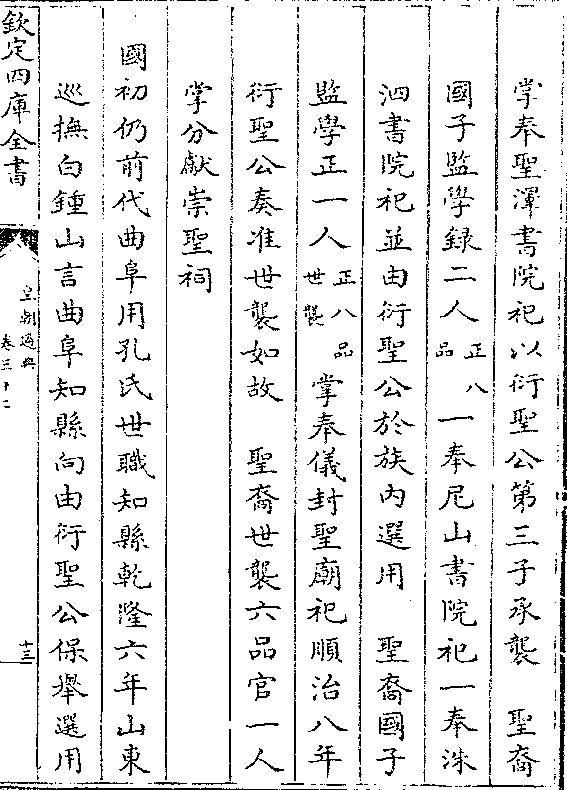 掌奉聖澤書院祀以衍聖公第三子承襲　聖裔
國子監學録二人正八品一奉尼山書院祀一奉洙
泗書院祀並由衍聖公於族内選用　聖裔國子
監學正一人正八品世襲掌奉儀封聖廟祀順治八年
衍聖公奏准世襲如故　聖裔世襲六品官一人
掌分獻崇聖祠
國初仍前代曲阜用孔氏世職知縣乾隆六年山東
巡撫白鍾山言曲阜知縣向由衍聖公保舉選用
欽定四庫全書
皇朝通典
卷三十二
十三